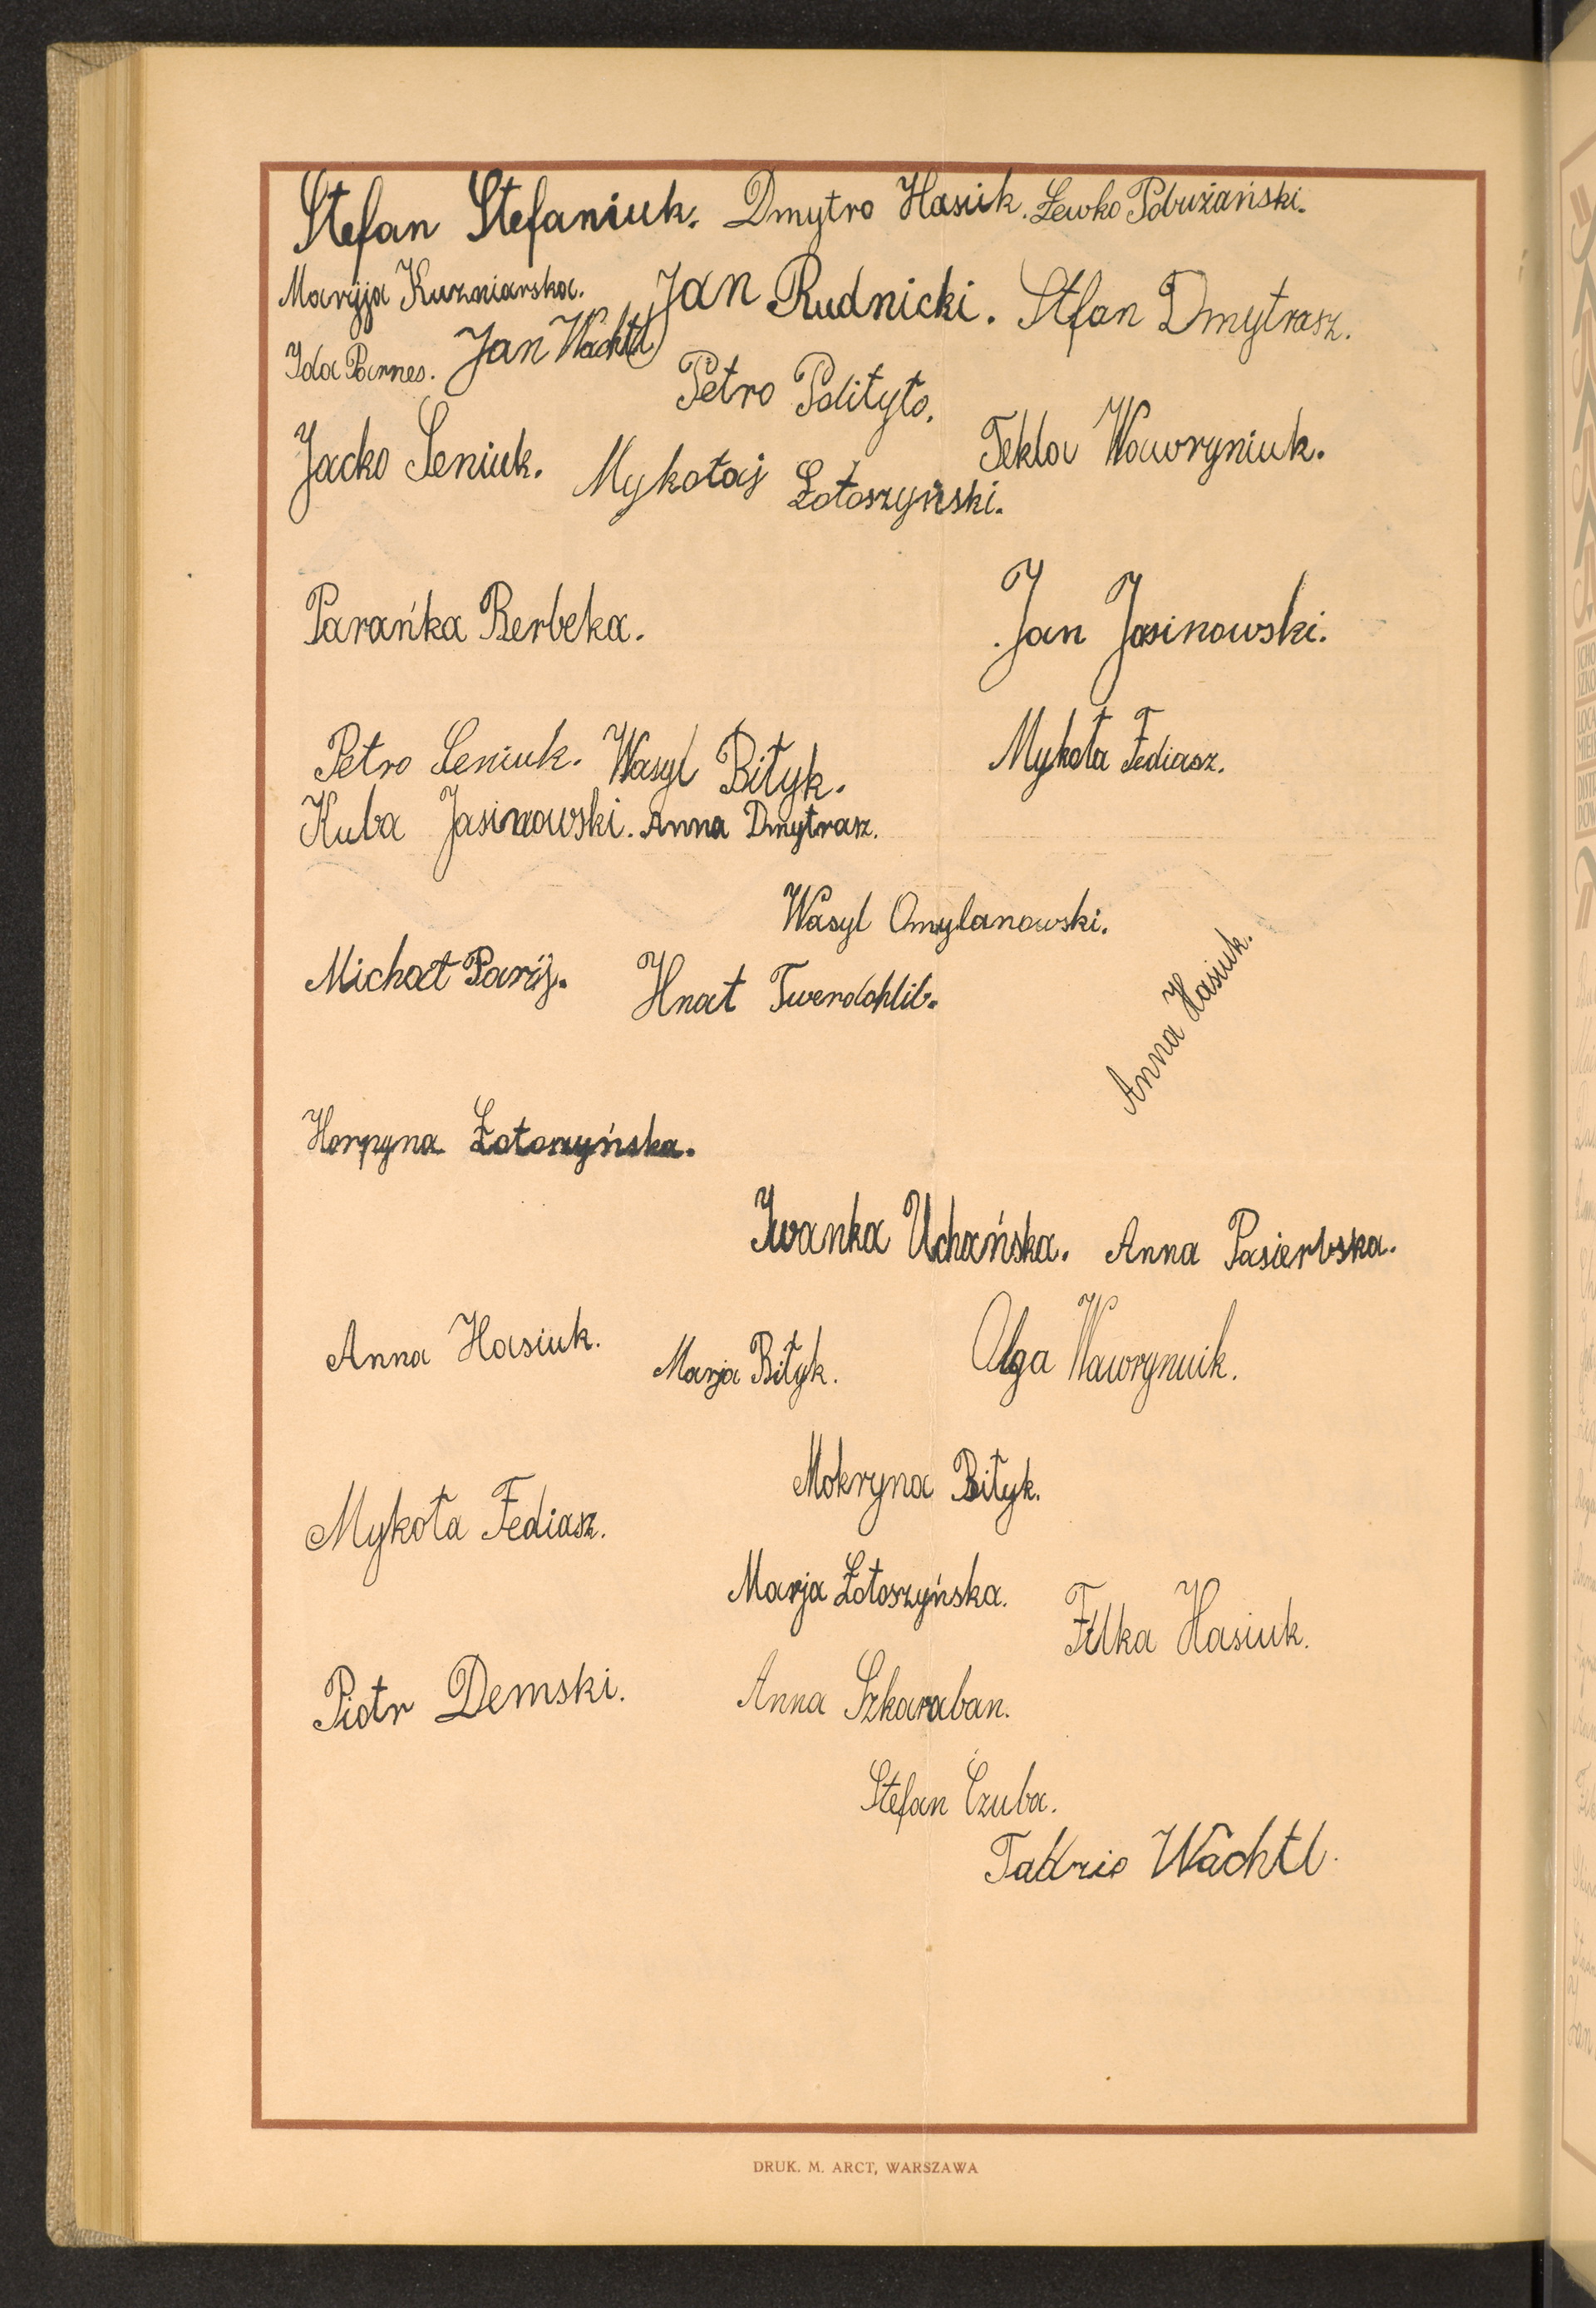 Stefan Stefaniuk. Dmytro Hasiik. Lewko Pobużański.
Maryja Kuzniarska. Jan Rudnicki. Stfan Dmytrasz.
Ida Barnes. Jan Wachtl
Petro Polityło.
Jacko Seniuk. Mykołaj Łotoszyński. Tekla Wawryniuk.
Parańka Berbeka. Jan Jasinowski.
Petro Seniuk. Wasyl Biłyk. Mykoła Fediasz.
Kuba Jasinowski. Anna Dmytrasz.
Wasyl Omylanowski.
Michał Parij. Hnat Twerdohlib.
Anna Hasiuk.
Horpyna Łotoszyńska.
Iwanka Uchańska. Anna Pasierbska.
Anna Hasiuk. Marja Biłyk. Olga Wawrynuik.
Mokryna Biłyk.
Mykoła Fediasz.
Marja Łotoszyńska. Filka Hasiuk.
Piotr Demski. Anna Szkaraban.
Stefan Czuba.
Wachtl.
DRUK. M. ARCT, WARSZAWA